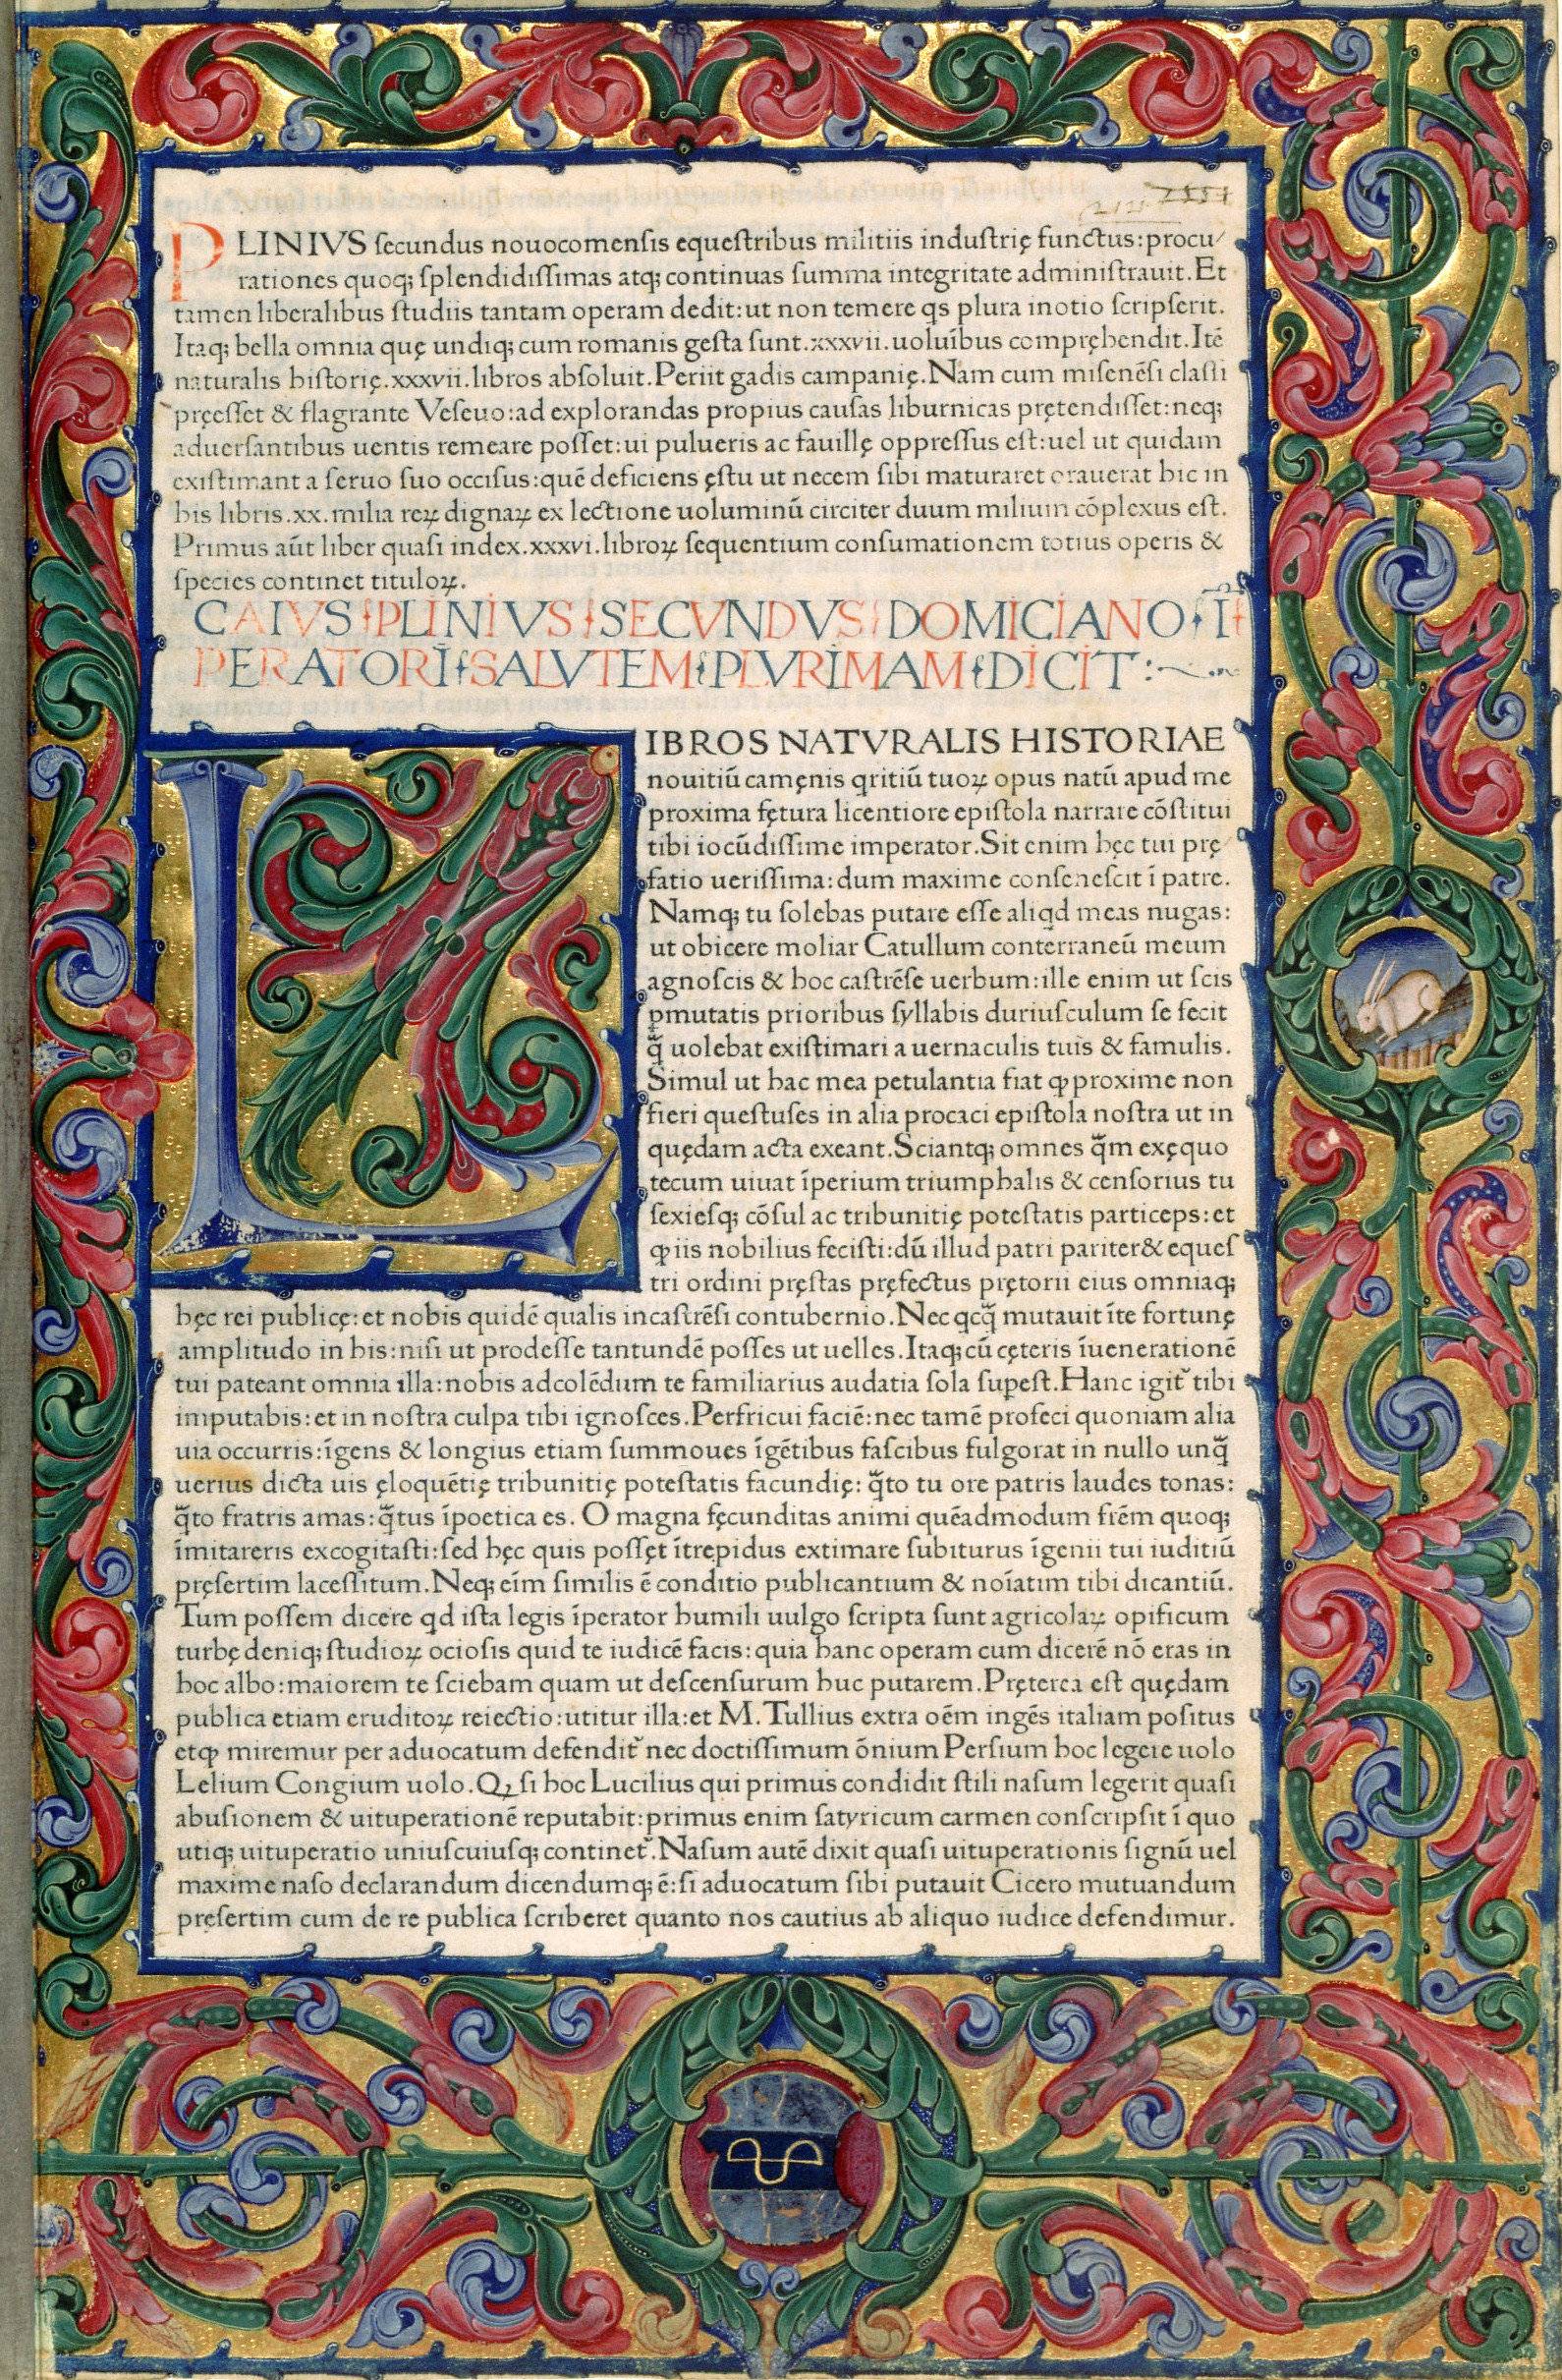 PLINIVS ſecundus nouocomenſis equeſtribus militiis induſtrię functus:procu/
rationes quoq; ſplendidiſſimas atq; continuas ſumma integritate adminiſtrauit. Et
tamen liberalibus ſtudiis tantam operam dedit:ut non temere qs plura inotio ſcripſerit.
Itaq; bella omnia quę undiq; cum romanis geſta ſunt.xxxvii.uoluībus compręhendit.Itē
naturalis hiſtorię.xxxvii.libros abſoluit.Periit gadis campanię.Nam cum miſenēſi claſſi
pręeſſet & flagrante Veſeuo:ad explorandas propius cauſas liburnicas prętendiſſet:neq;
aduerſantibus uentis remeare poſſet:ui pulueris ac fauillę oppreſſus eſt:uel ut quidam
exiſtimant a ſeruo ſuo occiſus:quē deficiens ęſtu ut necem ſibi maturaret orauerat hic in
his libris.xx.milia reꝝ dignaꝝ ex lectione uoluminū circiter duum milium cōplexus eſt.
Primus aūt liber quaſi index.xxxvi.libroꝝ ſequentium conſumationem totius operis &
ſpecies continet tituloꝝ.
CAIVS PLINIVS SECVNDVS DOMICIANO Ī
PERATORI SALVTEM PLVRIMAM DICIT:
LIBROS NATVRALIS HISTORIAE
nouitiū camęnis qritiū tuoꝝ opus natū apud me
proxima fętura licentiore epiſtola narrare cōſtitui
tibi iocūdiſſime imperator.Sit enim hęc tui prę
fatio ueriſſima:dum maxime conſeneſcit ī patre.
Namq; tu ſolebas putare eſſe aliqd meas nugas:
ut obicere moliar Catullum conterraneū meum
agnoſcis & hoc caſtrēſe uerbum:ille enim ut ſcis
ꝑmutatis prioribus ſyllabis duriuſculum ſe fecit
q̃ uolebat exiſtimari a uernaculis tuis & famulis.
Simul ut hac mea petulantia fiat ꝙ proxime non
fieri queſtuſes in alia procaci epiſtola noſtra ut in
quędam acta exeant.Sciantq; omnes q̃m exęquo
tecum uiuat īperium triumphalis & cenſorius tu
ſexieſq; cōſul ac tribunitię poteſtatis particeps:et
ꝙ iis nobilius feciſti:dū illud patri pariter& equeſ
tri ordini pręſtas pręfectus prętorii eius omniaq;
hęc rei publicę:et nobis quidē qualis incaſtrēſi contubernio.Nec qcq̃ mutauit īte fortunę
amplitudo in his:niſi ut prodeſſe tantundē poſſes ut uelles.Itaq; cū cęteris īuenerationē
tui pateant omnia illa:nobis adcolēdum te familiarius audatia ſola ſupeſt.Hanc igit᷑ tibi
imputabis:et in noſtra culpa tibi ignoſces.Perfricui faciē:nec tamē profeci quoniam alia
uia occurris:īgens & longius etiam ſummoues īgētibus faſcibus fulgorat in nullo unq̃
uerius dicta uis ęloquētię tribunitię poteſtatis facundię: q̃to tu ore patris laudes tonas:
q̃to fratris amas:q̃tus īpoetica es. O magna fęcunditas animi quēadmodum frēm quoq;
īmitareris excogitaſti:ſed hęc quis poſſęt ītrepidus extimare ſubiturus īgenii tui iuditiū
pręſertim laceſſitum.Neq; eīm ſimilis ē conditio publicantium & noīatim tibi dicantiū.
Tum poſſem dicere qd iſta legis īperator humili uulgo ſcripta ſunt agricolaꝝ opificum
turbę deniq; ſtudioꝝ ocioſis quid te iudicē facis: quia hanc operam cum dicerē nō eras in
hoc albo:maiorem te ſciebam quam ut deſcenſurum huc putarem.Pręterea eſt quędam
publica etiam eruditoꝝ reiectio:utitur illa:et M.Tullius extra oēm ingēs italiam poſitus
etꝙ miremur per aduocatum defendit᷑ nec doctiſſimum ōnium Perſium hoc legere uolo
Lelium Congium uolo.Qꝫ ſi hoc Lucilius qui primus condidit ſtili naſum legerit quaſi
abuſionem & uituperationē reputabit:primus enim ſatyricum carmen conſcripſit ī quo
utiq; uituperatio uniuſcuiuſq; continet᷑.Naſum autē dixit quaſi uituperationis ſignū uel
maxime naſo declarandum dicendumq; ē:ſi aduocatum ſibi putauit Cicero mutuandum
pręſertim cum de re publica ſcriberet quanto nos cautius ab aliquo iudice defendimur.